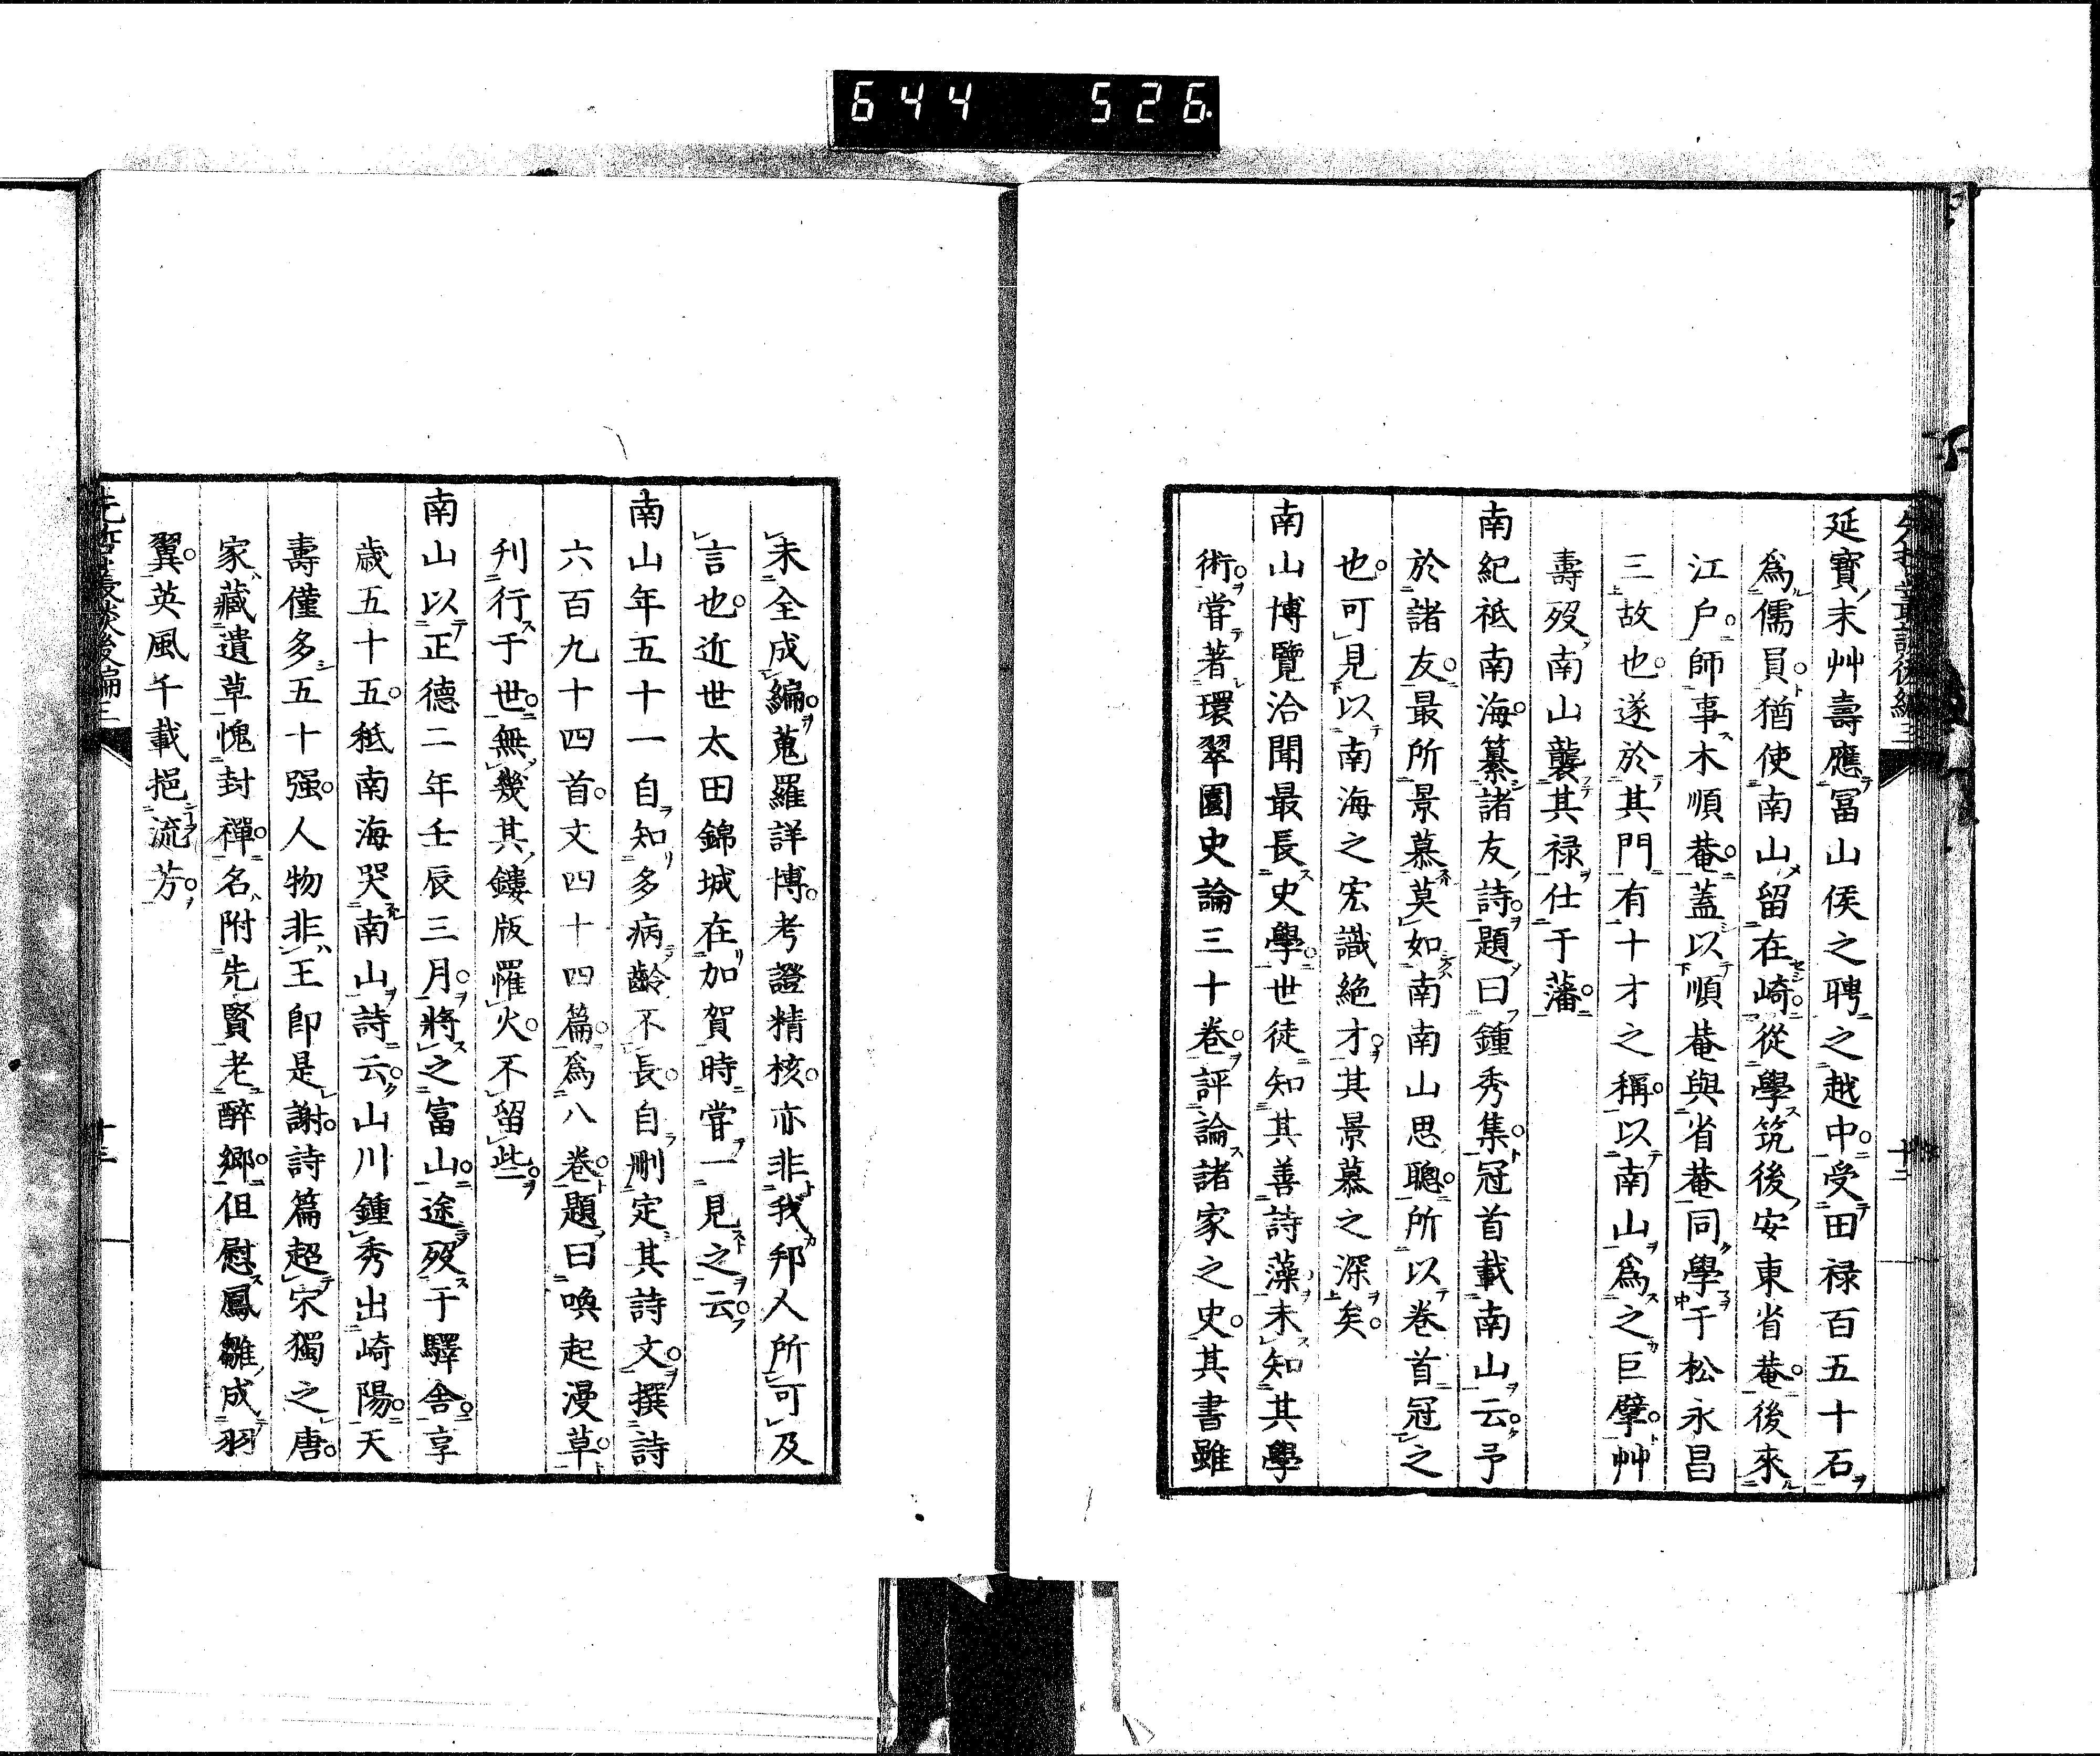 644 526
延寶末艸壽應冨山侯之聘之越中受田禄百五十石
爲儒員猶使南山留在崎從學筑後安東省菴後來
江戶師事木順菴蓋以順菴與省菴同學于松永昌
三故也遂於其門有十才之稱以南山爲之巨擘艸
壽歿南山襲其禄仕于藩
南紀祗南海纂諸友詩題曰鍾秀集冠首載南山云予
於諸友最所景慕莫如南南山思聰所以卷首冠之
也可見以南海之宏識絶才其景慕之深矣
南山博覽洽聞最長史學世徒知其善詩藻未知其學
術嘗著環翠園史論三十卷評論諸家之史其書雖
十二
未全成編蒐羅詳博考證精核亦非我邦人所可及
言也近世太田錦城在加賀時嘗一見之云
南山年五十一自知多病齡不長自刪定其詩文撰詩
六百九十四首文四十四篇爲八卷題曰喚起漫草
刋行于世無幾其鏤版罹火不留些
南山以正德二年壬辰三月將之富山途歿于驛舍享
歲五十五秪南海哭南山詩云山川鍾秀出崎陽天
壽僅多五十强人物非王卽是謝詩篇超宋獨之唐
家藏遺草愧封禪名附先賢老醉鄉但慰鳳雛成羽
翼英風千載挹流芳